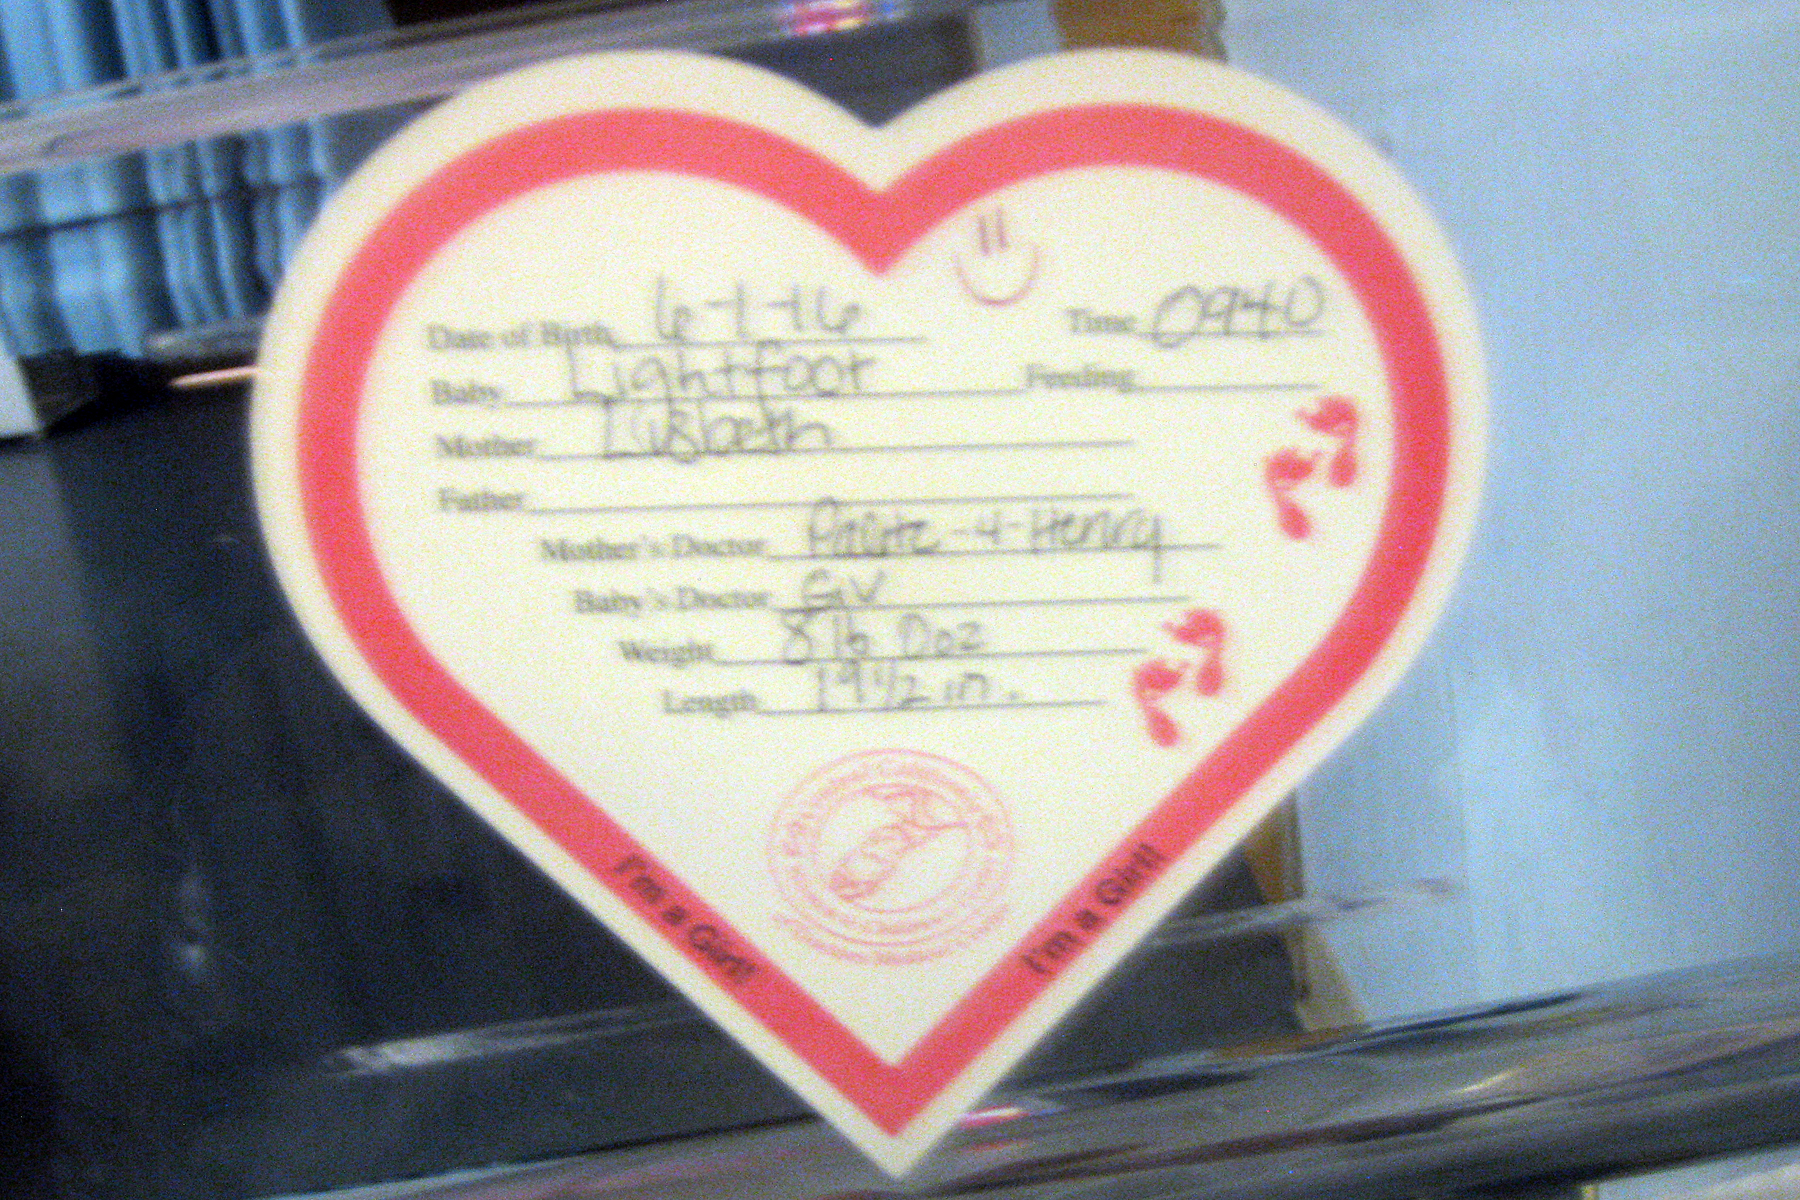 Date of Birth 6-1-16 Time 0940
Baby Lightfoot Feeding
Mother
Father
Mother's Doctor -4-Henry
Baby's Doctor GV
Weight 8 lb 0oz
Length 19 1/2 in.
I'm a Girl! I'm a Girl!